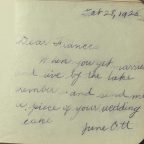 Feb 28, 1926
Dear Frances
When you get married
and live by the lake
remember and send me
a piece of your wedding
cake
June Ott